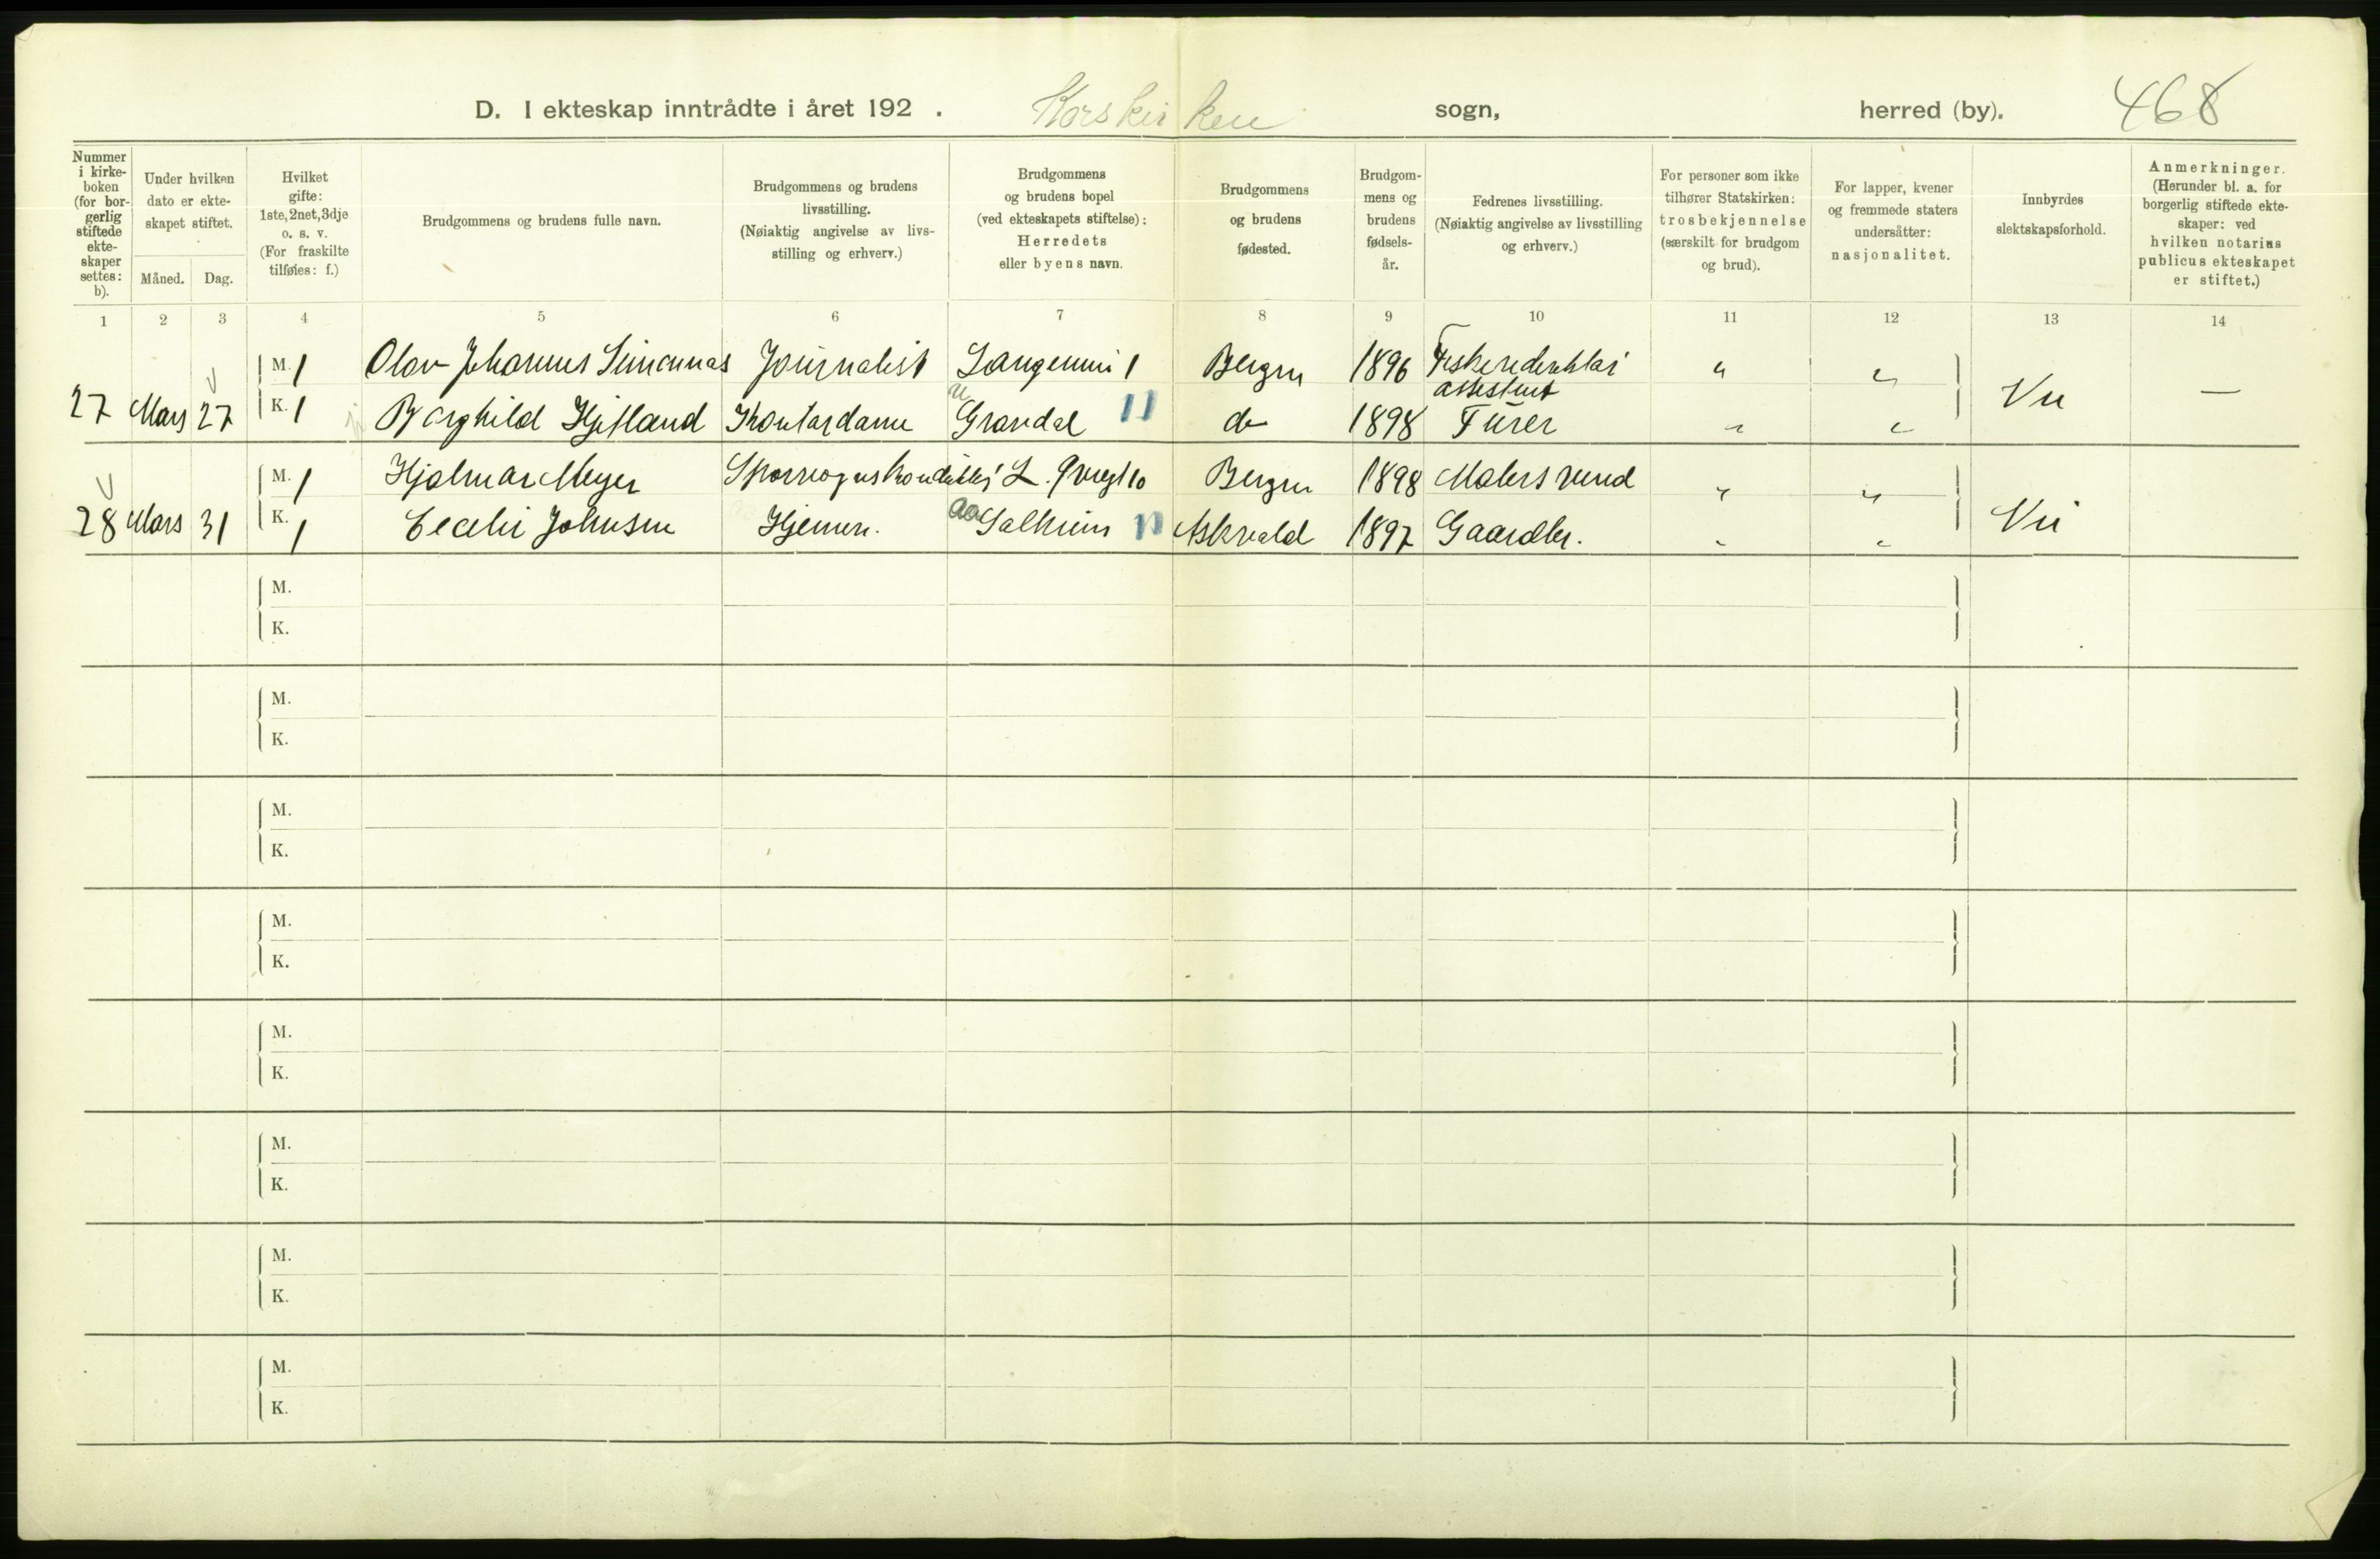 D. I ekteskap inntrådte i året 192 . Korskirken sogn, herred (by). 468
Nummer i kirkeboken (for borgerlig stiftede ekteskaper settes: b).
Under hvilken dato er ekteskapet stiftet.
Måned. Dag.
Hvilket gifte: 1ste, 2net, 3dje o. s. v. (For fraskilte tilføies: f.)
Brudgommens og brudens fulle navn.
Brudgommens og brudens livsstilling. (Nøiaktig angivelse av livsstilling og erhverv.)
Brudgommens og brudens bopel (ved ekteskapets stiftelse): Herredets eller byens navn.
Brudgommens og brudens fødested.
Brudgommens og brudens fødselsår.
Fedrenes livsstilling. (Nøiaktig angivelse av livsstilling og erhverv.)
For personer som ikke tilhører Statskirken: trosbekjennelse (særskilt for brudgom og brud).
For lapper, kvener og fremmede staters undersåtter: nasjonalitet.
Innbyrdes slektskapsforhold.
Anmerkninger. (Herunder bl. a. for borgerlig stiftede ekteskaper: ved hvilken notarius publicus ekteskapet er stiftet.)
1 2 3 4 5 6 7 8 9 10 11 12 13 14
M. 1 Olav Johannes Simonnas Journalist Bergen 1896 assistent " "
27 Mars 27 K. 1 Borghild Hjetland Kontordame 11 do 1898 " " —
M. 1 Hjalmar Meyer Bergen 1898 Malersvend " "
28 Mars 31 K. 1 Cecilie Johnsen Hjemm. Salhus 11 Askvold 1897 Gaardbr. " "
M.
K.
M.
K.
M.
K.
M.
K.
M.
K.
M.
K.
M.
K.
M.
K.